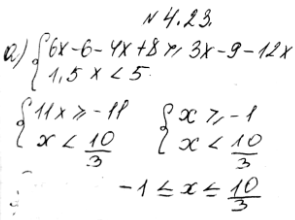 № 4.23.
а) { 6x - 6 - 4x + 8 ≥ 3x - 9 - 12x
1,5x < 5
{ 11x ≥ -11 { x ≥ -1
x < 10/3 x < 10/3
-1 ≤ x ≤ 10/3